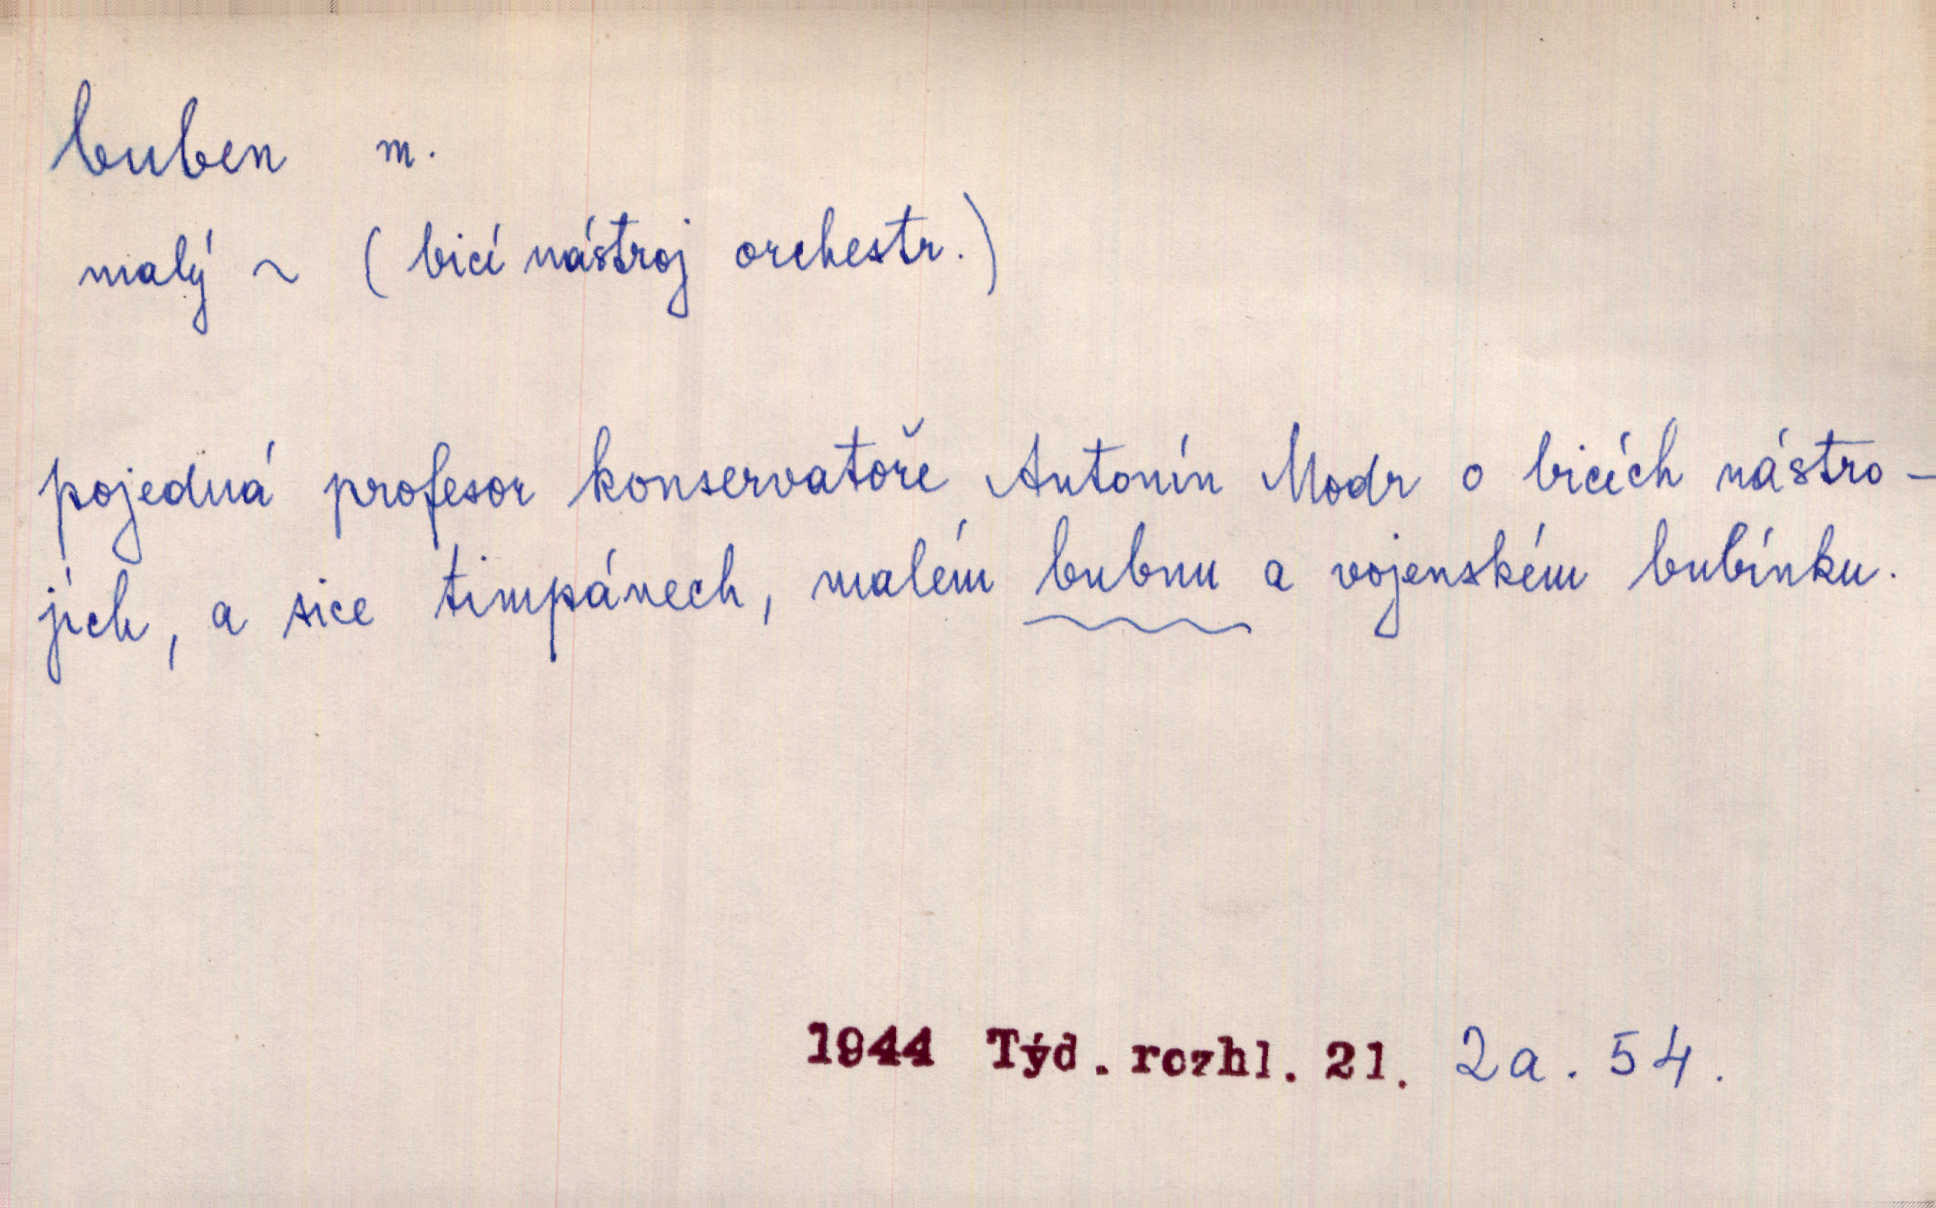 buben m.
malý ~ (bicí nástroj orchestr.)
pojedná profesor konservatoře Antonín Modr o bicích nástro-
jích, a sice timpánech, malém bubnu a vojenském bubínku.
1944 Týd. rozhl. 21. 2a. 54.